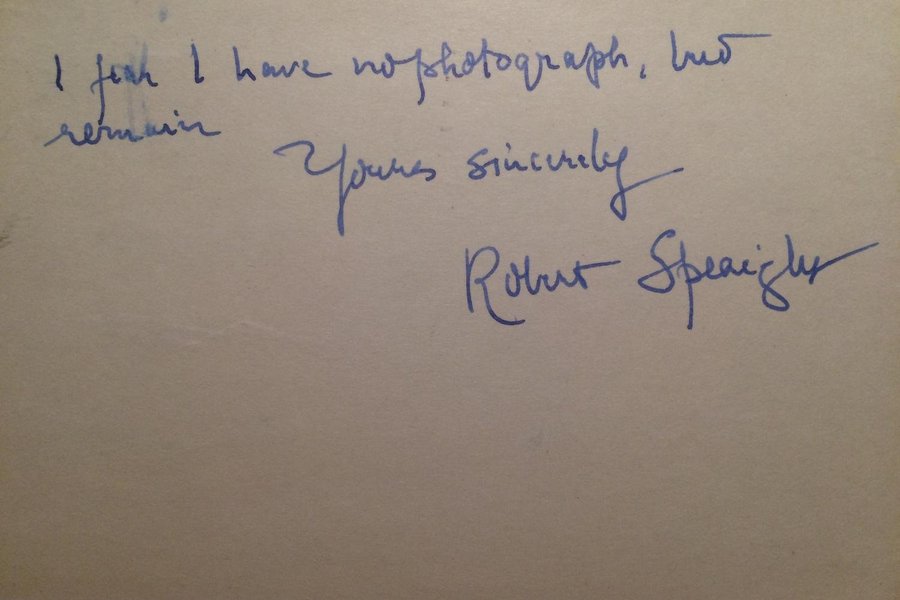 I fear I have no photograph, but
remain
Yours sincerely
Robert Speaight